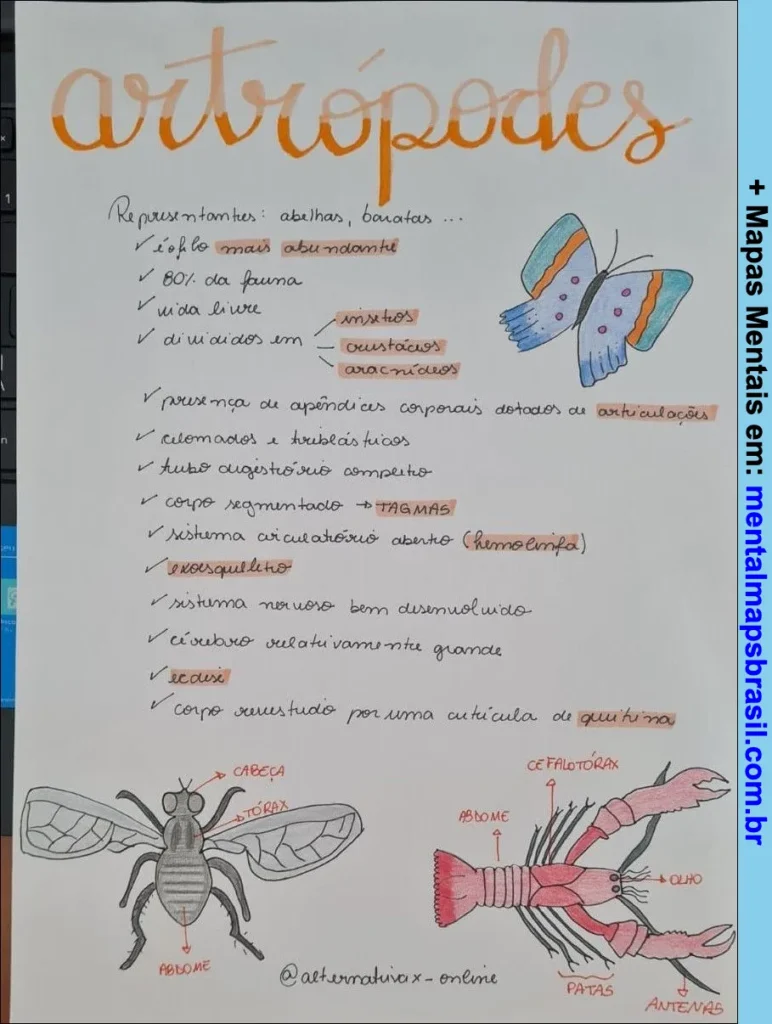 artrópodes
Representantes: abelhas, baratas ...
✓ é o filo mais abundante
✓ 80% da fauna
✓ vida livre
✓ divididos em
insetos
crustácios
aracnídeos
✓ presença de apêndices corporais dotados de articulações
✓ celomados e triblásticos
✓ tubo digestório completo
✓ corpo segmentado → TAGMAS
✓ sistema circulatório aberto (hemolinfa)
✓ exoesqueleto
✓ sistema nervoso bem desenvolvido
✓ cérebro relativamente grande
✓ ecdise
✓ corpo revestido por uma cutícula de quitina
CABEÇA
TÓRAX
ABDOME
CEFALOTÓRAX
ABDOME
OLHO
PATAS
ANTENAS
@alternativax-online
+ Mapas Mentais em: mentalmapsbrasil.com.br